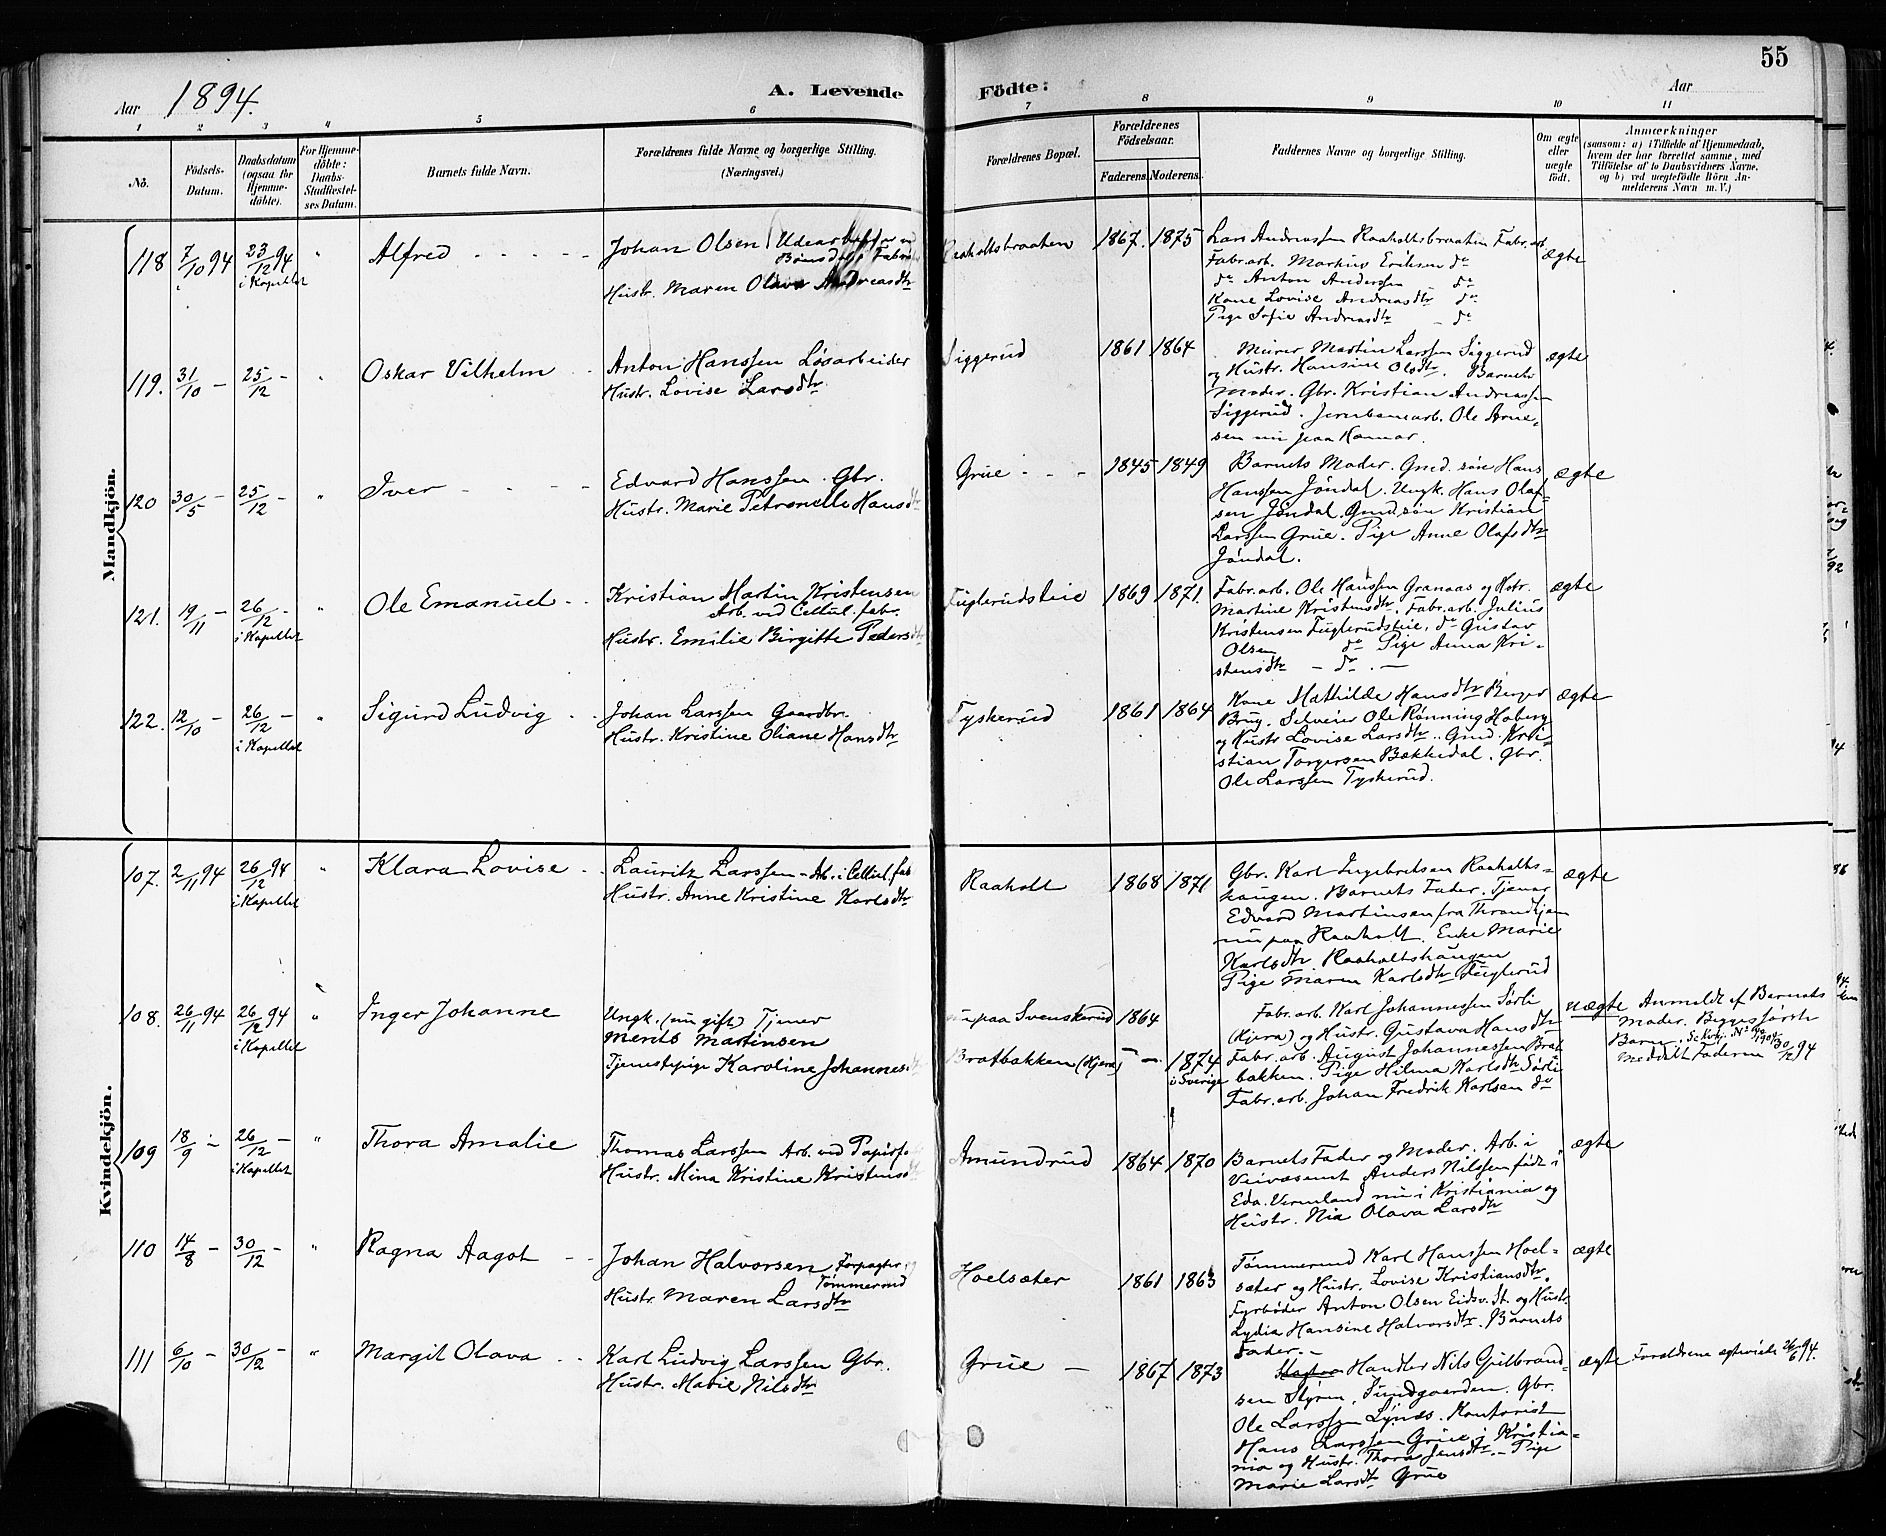 55
Aar 1894.
A. Levende Födte:
Aar
1 2 3 4 5 6 7 8 9 10 11
No.
Födsels-Datum.
Daabsdatum (ogsaa for Hjemme-döbte).
For Hjemme-döbte: Daabs-Stadfæstel-ses Datum.
Barnets fulde Navn.
Forældrenes fulde Navne og borgerlige Stilling.
(Næringsvei.)
Forældrenes Bopæl.
Forældrenes Födselsaar.
Faderens. Moderens.
Faddernes Navne og borgerlige Stilling.
Om ægte eller uægte födt.
Anmærkninger
(saasom: a) i Tilfælde af Hjemmedaab,
hvem der har forrettet samme, med
Tilföielse af to Daabsvidners Navne.
og b) ved uægtefödte Börn An-
melderens Navn m. V.)
Mandkjön.
118 7/10 94 23/12 94 i Kapellet " Alfred
Johan Olsen
Hustr. Maren Olava Andreasdtr
Raaholtsbraaten 1867. 1875
Lars Andreassen Raaholtsbraaten Fabr.arb.
Fabr.arb. Markus Eriksen do
do Anton Anderssen - do
Kone Lovise Andreasdtr do
Pige Sofie Andreasdtr - do
ægte
119. 31/10 - 25/12 - " Oskar Vilhelm
Anton Hanssen Løsarbeider
Hustr. Lovise Larsdtr.
Siggerud 1861 1864
Murer Martin Larssen Siggerud
og Hustr. Hansine Olsdtr. Barnets
Moder. Gbr. Kristian Andreassen
Siggerud. Jernbanearb. Ole Arne-
sen nu paa Hamar.
ægte
120 30/5 - 25/12 - " Iver
Edvard Hanssen. Gbr.
Hustr. Marie Petronelle Hansdtr
Grue - - - 1845 1849
Barnets Moder. Gmd. søn Hans
Hanssen Jøndal. Ungk. Hans Olaf-
sen Jøndal. Gmd. søn Kristian
Larssen Grue. Pige Anne Olafsdtr
Jøndal.
ægte
121. 19/11 - 26/12 - i Kapellet " Ole Emanuel
Kristian Martin Kristensen
Arb. ved Cellul. fabr.
Hustr. Emilie Birgitte Pedersdtr
Fuglerudsteie 1869 1871.
Fabr.arb. Ole Hanssen Granaas og Hstr.
Martine Kristensdtr. Fabr.arb. Julius
Kristensen Fuglerudsteie, do Gustav
Olsen do Pige Anna Kri-
stensdtr - do. -
ægte
122. 12/10 - 26/12 - i Kapellet " Sigurd Ludvig
Johan Larssen Gaardbr.
Hustr. Kristine Oliane Hansdtr
Tyskerud 1861 1864
Kone Mathilde Hansdtr Berger
Brug. Selveier Ole Rønning Hoberg
og Hustr Lovise Larsdtr. Gmd. Kri-
stian Torgersen Bækkedal. Gbr.
Ole Larssen Tyskerud.
ægte
Kvindekjön.
107. 2/11 94 26/12 94 i Kapellet " Klara Lovise
Lauritz Larssen - Arb. i Cellul. fab
Hustr. Anne Kristine Karlsdtr
Raaholt 1868 1871
Gbr. Karl Ingebretsen Raaholts-
haugen. Barnets Fader. Tjener
Edvard Martinsen fra Throndhjem
nu paa Raaholt. Enke Marie
Karlsdtr Raaholtshaugen
Pige Maren Karlsdtr Fuglerud
ægte
108. 26/11 94 26/12 94 i Kapellet " Inger Johanne
Ungk. (nu gift) Tjener
Merits Martinsen
Tjenestepige Karoline Johannesdtr
nu paa Svenskerud 1864
Bratbakken (Hjera) - - 1874 i Sverige
Fabr. arb. Karl Johannessen Sørli
(Hjera) og Hustr. Gustava Hansdtr
Fabr. arb. August Johannessen Brat
bakken. Pige Hilma Karlsdtr Sørli
Fabr. arb. Johan Fredrik Karlsen do
uægte
Anmeldt af Barnets
Moder. Begges første
Barn.
Meddelt Faderen 30/12 94
109 18/9 - 26/12 - i Kapellet " Thora Amalie
Thomas Larssen Arb. ved Papirf
Hustr. Mina Kristine Kristensd
Amundrud 1864 1870
Barnets Fader og Moder. Arb. i
Veivæsenet Anders Nilssen født i
Eda. Vermland nu i Kristiania og
Hustr. Nia Olava Larsdtr
ægte
110 14/8 - 30/12 - " Ragna Aagot
Johan Halvorsen Forpagter
Tømmermd
Hustr. Maren Larsdtr
Hoelsæter 1861 1863
Tømmermd Karl Hanssen Hoel-
sæter og Hustr. Lovise Kristiansdtr.
Fyrbøder Anton Olsen Eidsv. St. og Hustr.
Lydia Hansine Halvorsdtr. Barnets
Fader. -
ægte
111 6/10 - 30/12 - " Margit Olava
Karl Ludvig Larssen Gbr.
Hustr. Marie Nilsdtr
Grue - 1867 1873
Handler Nils Gulbrand-
sen Styren, Sundgaarden. Gbr.
Ole Larssen Lynæs. Kontorist
Hans Larssen Grue i Kristia-
nia og Hustr. Thora Jensdtr. - Pige
Marie Larsdtr Grue
ægte
Forældrene ægteviede 26/6 94.